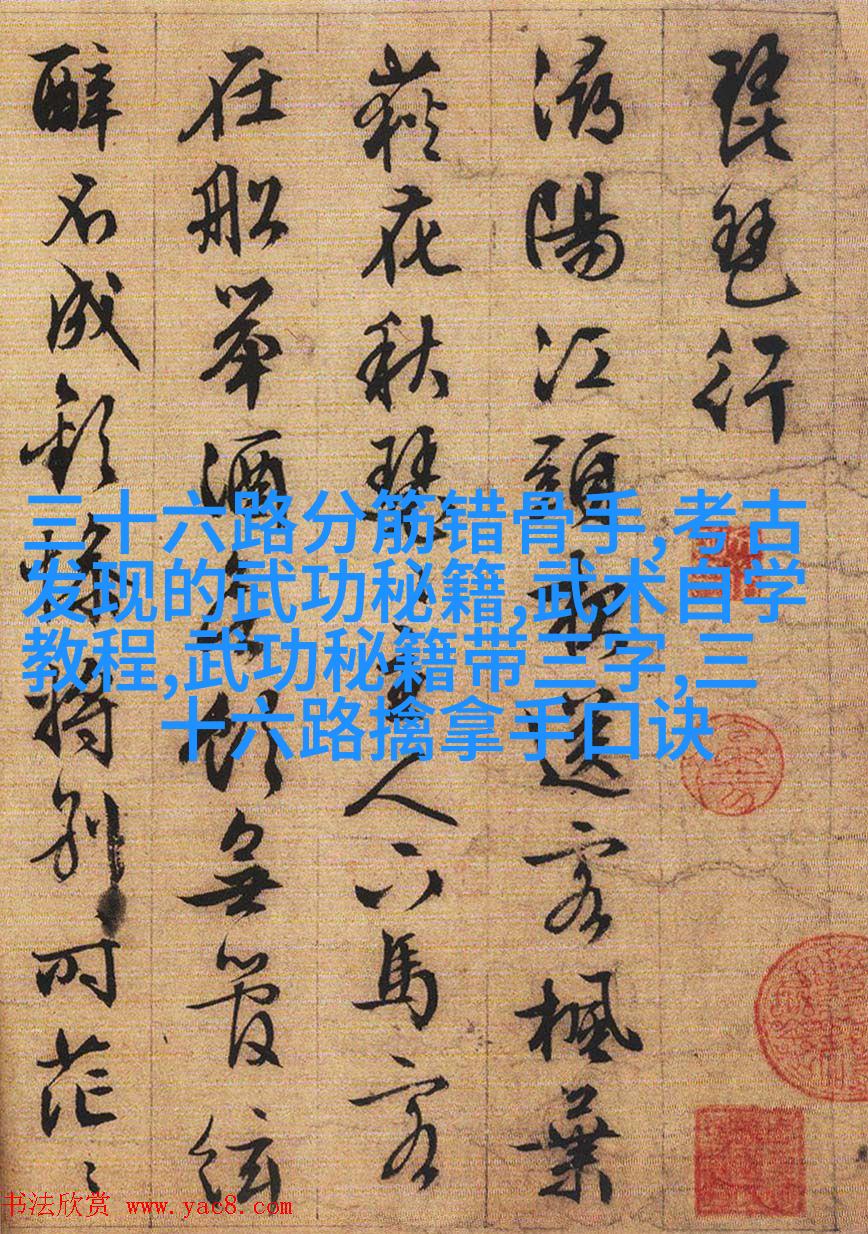 琵琶行
潯陽江頭夜送客楓葉
荻花秋瑟〻主人下馬客
在船舉酒欲飲無管絃
醉不成歡慘將別時茫〻
三十六路分筋错骨手,考古
发现的武功秘籍,武术自学
教程,武功秘籍带三字,三
十六路擒拿手口诀
书法欣赏 www.yac8.com